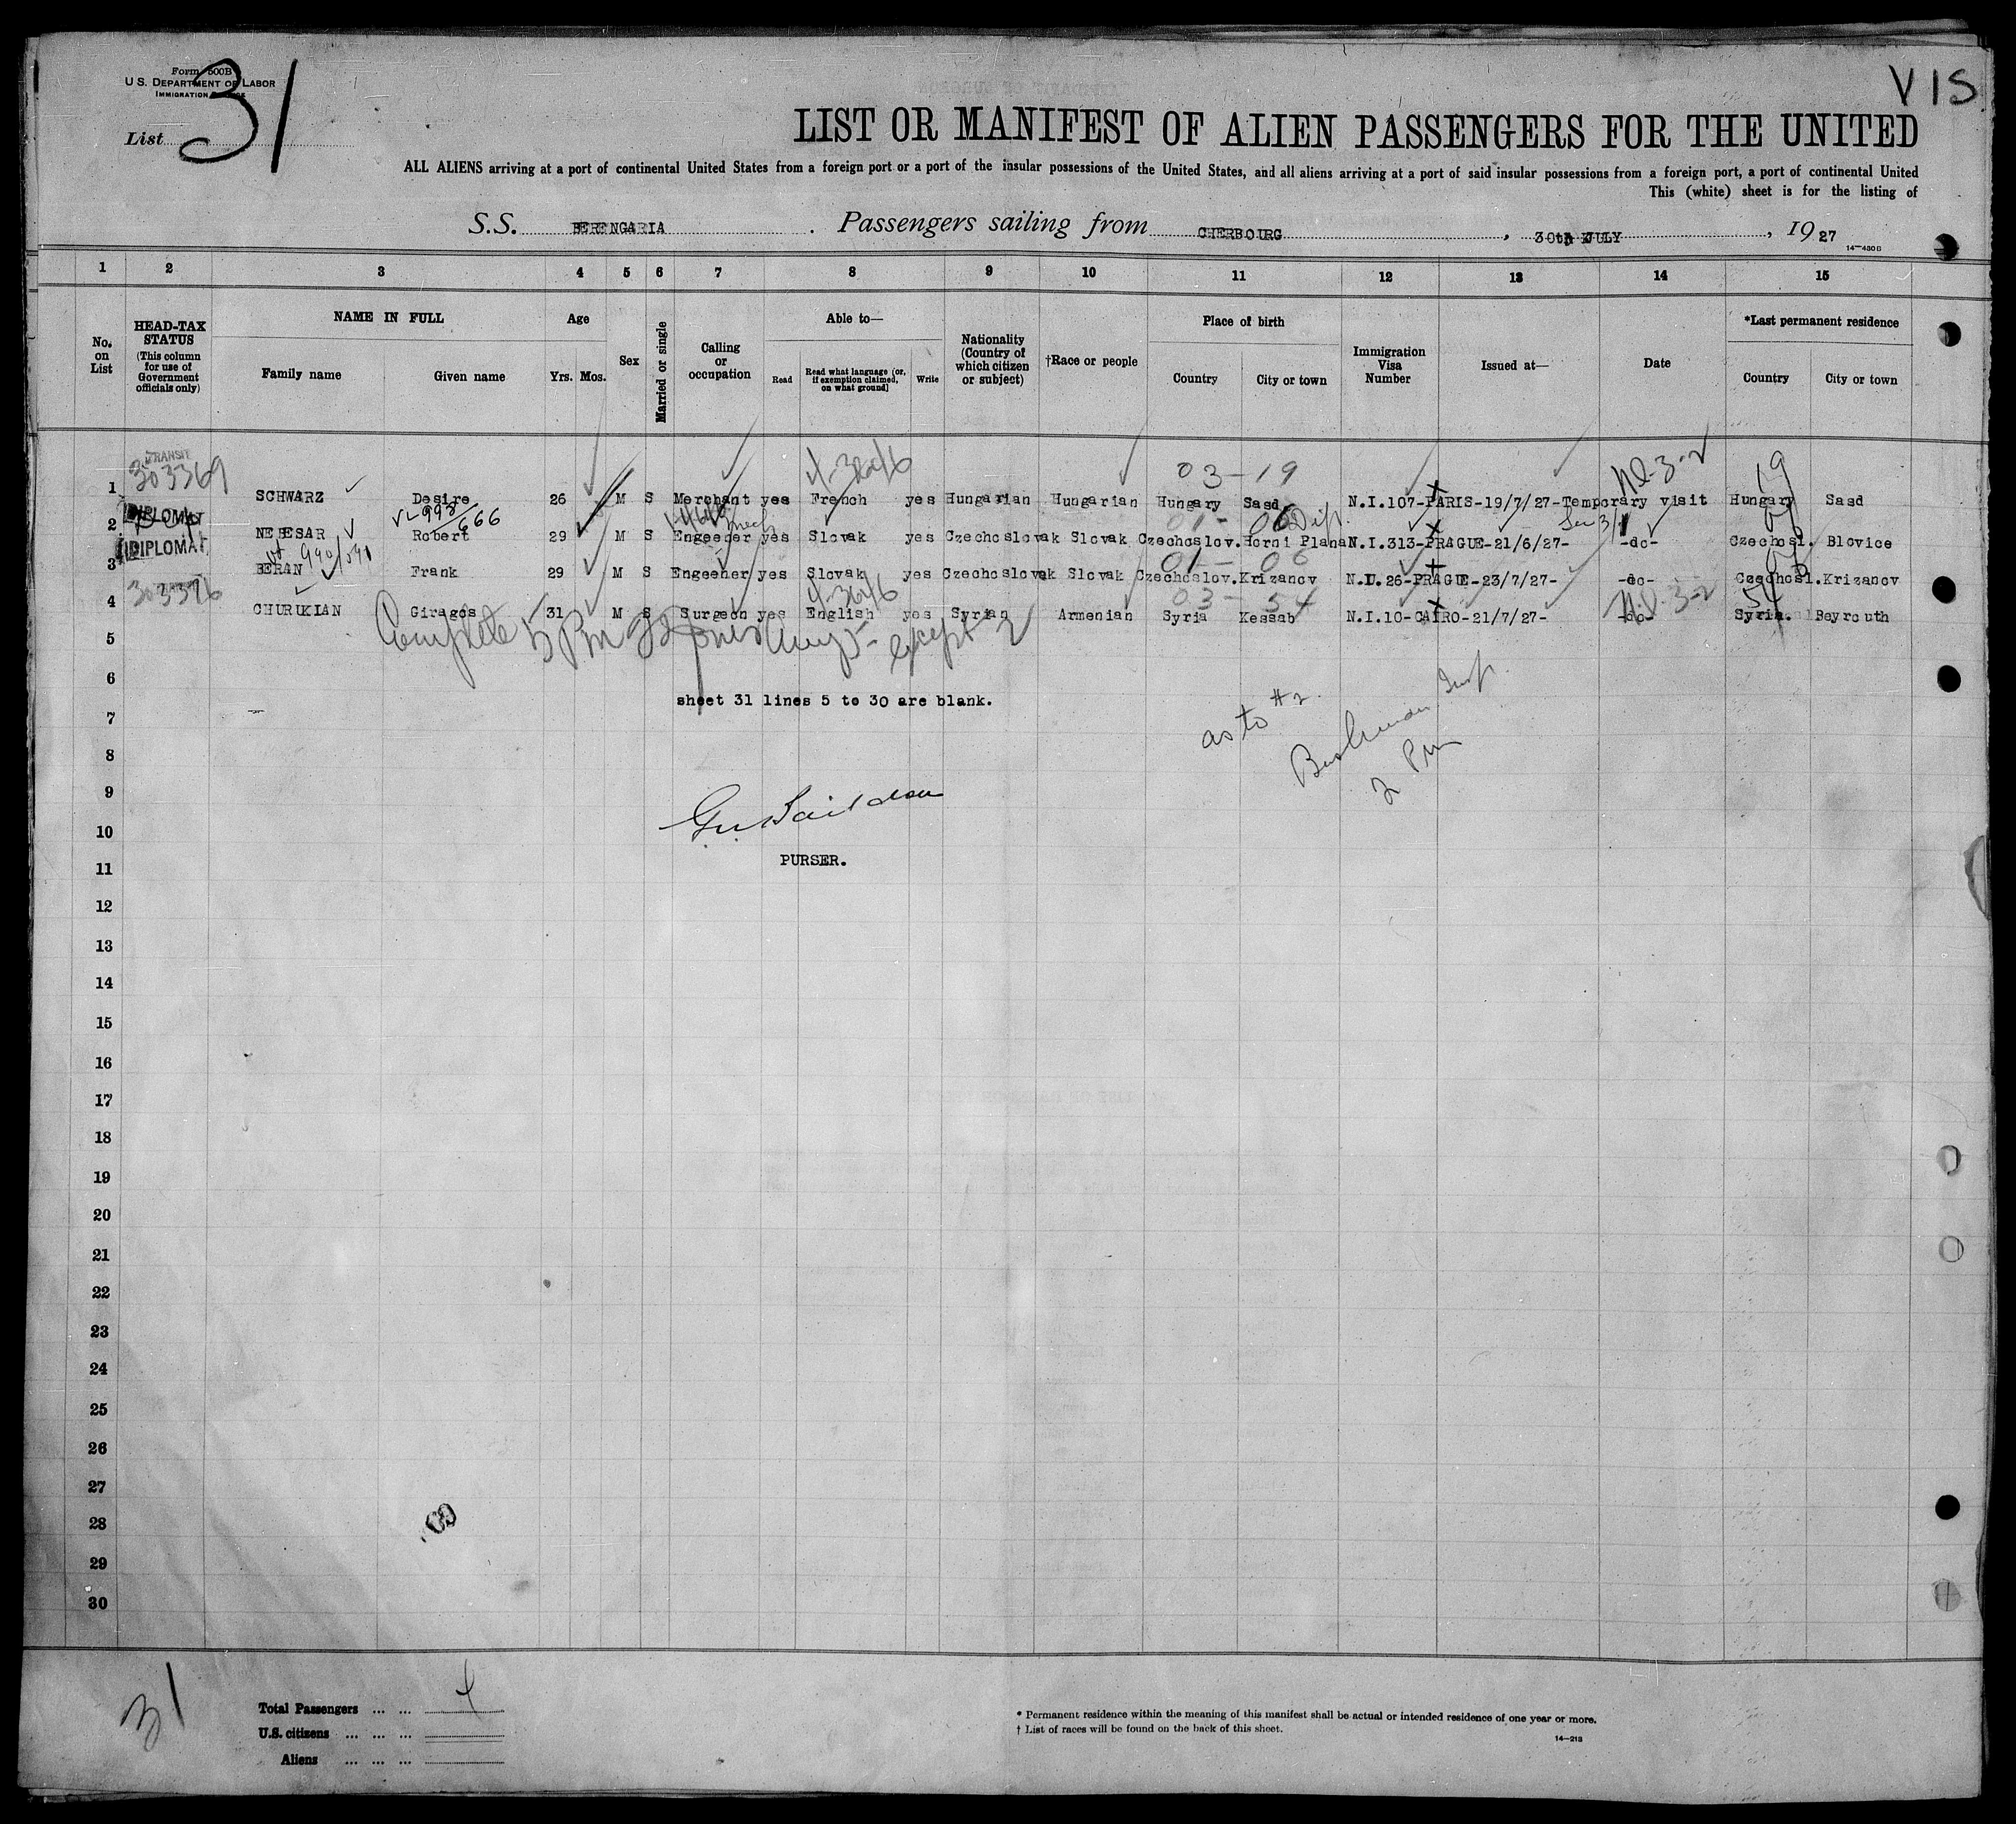 Form 500B
U.S. DEPARTMENT OF LABOR
IMMIGRATION
List 31
VIS
LIST OR MANIFEST OF ALIEN PASSENGERS FOR THE UNITED
ALL ALIENS arriving at a port of continental United States from a foreign port or a port of the insular possessions of the United States, and all aliens arriving at a port of said insular possessions from a foreign port, a port of continental United
This (white) sheet is for the listing of
S.S. BERENGARIA . Passengers sailing from CHERBOURG , 30th JULY , 1927
14—480B
1 2 3 4 5 6 7 8 9 10 11 12 13 14 15
No. on List
HEAD-TAX STATUS (This column for use of Government officials only)
NAME IN FULL
Family name Given name
Age Yrs. Mos.
Sex
Married or single
Calling or occupation
Able to—
Read Read what language (or, if exemption claimed, on what ground) Write
Nationality (Country of which citizen or subject)
†Race or people
Place of birth
Country City or town
Immigration Visa Number
Issued at—
Date
*Last permanent residence
Country City or town
TRANSIT
303369 03-19
1 SCHWARZ Desire 26 M S Merchant yes French yes Hungarian Hungarian Hungary Sasd N.I.107-PARIS-19/7/27-Temporary visit Hungary Sasd
DIPLOMAT VL-998/666
2 NEBESAR Robert 29 M S Engeener yes Slovak yes Czechoslovak Slovak Czechoslov. Horni Plana N.I.313-PRAGUE-21/6/27- -do- Czechosl. Blovice
DIPLOMAT
3 BERAN Frank 29 M S Engeener yes Slovak yes Czechoslovak Slovak Czechoslov. Krizanov 26-PRAGUE-23/7/27- -do- Czechosl. Krizanov
303376 03-54
4 CHURUKIAN Giragos 31 M S Surgeon yes English yes Syrian Armenian Syria Kessab N.I.10-CAIRO-21/7/27- -do- Syria. Beyrouth
Complete 5 Pm except 2
5
6
sheet 31 lines 5 to 30 are blank.
as to #2
Insp.
7
8
2 Pm
9
10
PURSER.
11
12
13
14
15
16
17
18
19
20
21
22
23
24
25
26
27
28
29
30
31
Total Passengers ... ... 4
U.S. citizens ... ... ...
Aliens ... ... ...
* Permanent residence within the meaning of this manifest shall be actual or intended residence of one year or more.
† List of races will be found on the back of this sheet.
14—213